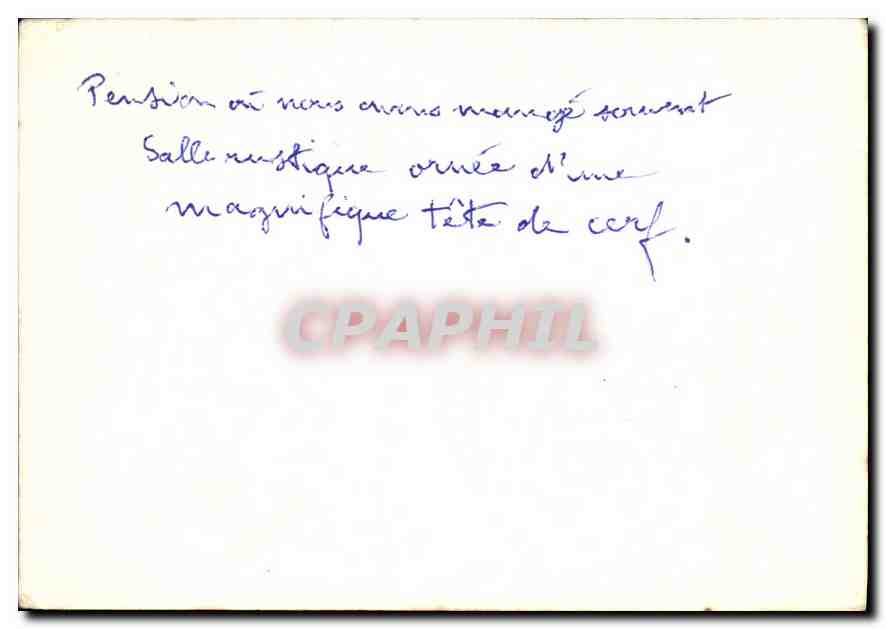 Pension où nous avons mangé souvent
Salle rustique ornée d'une
magnifique tête de cerf.
CPAPHIL